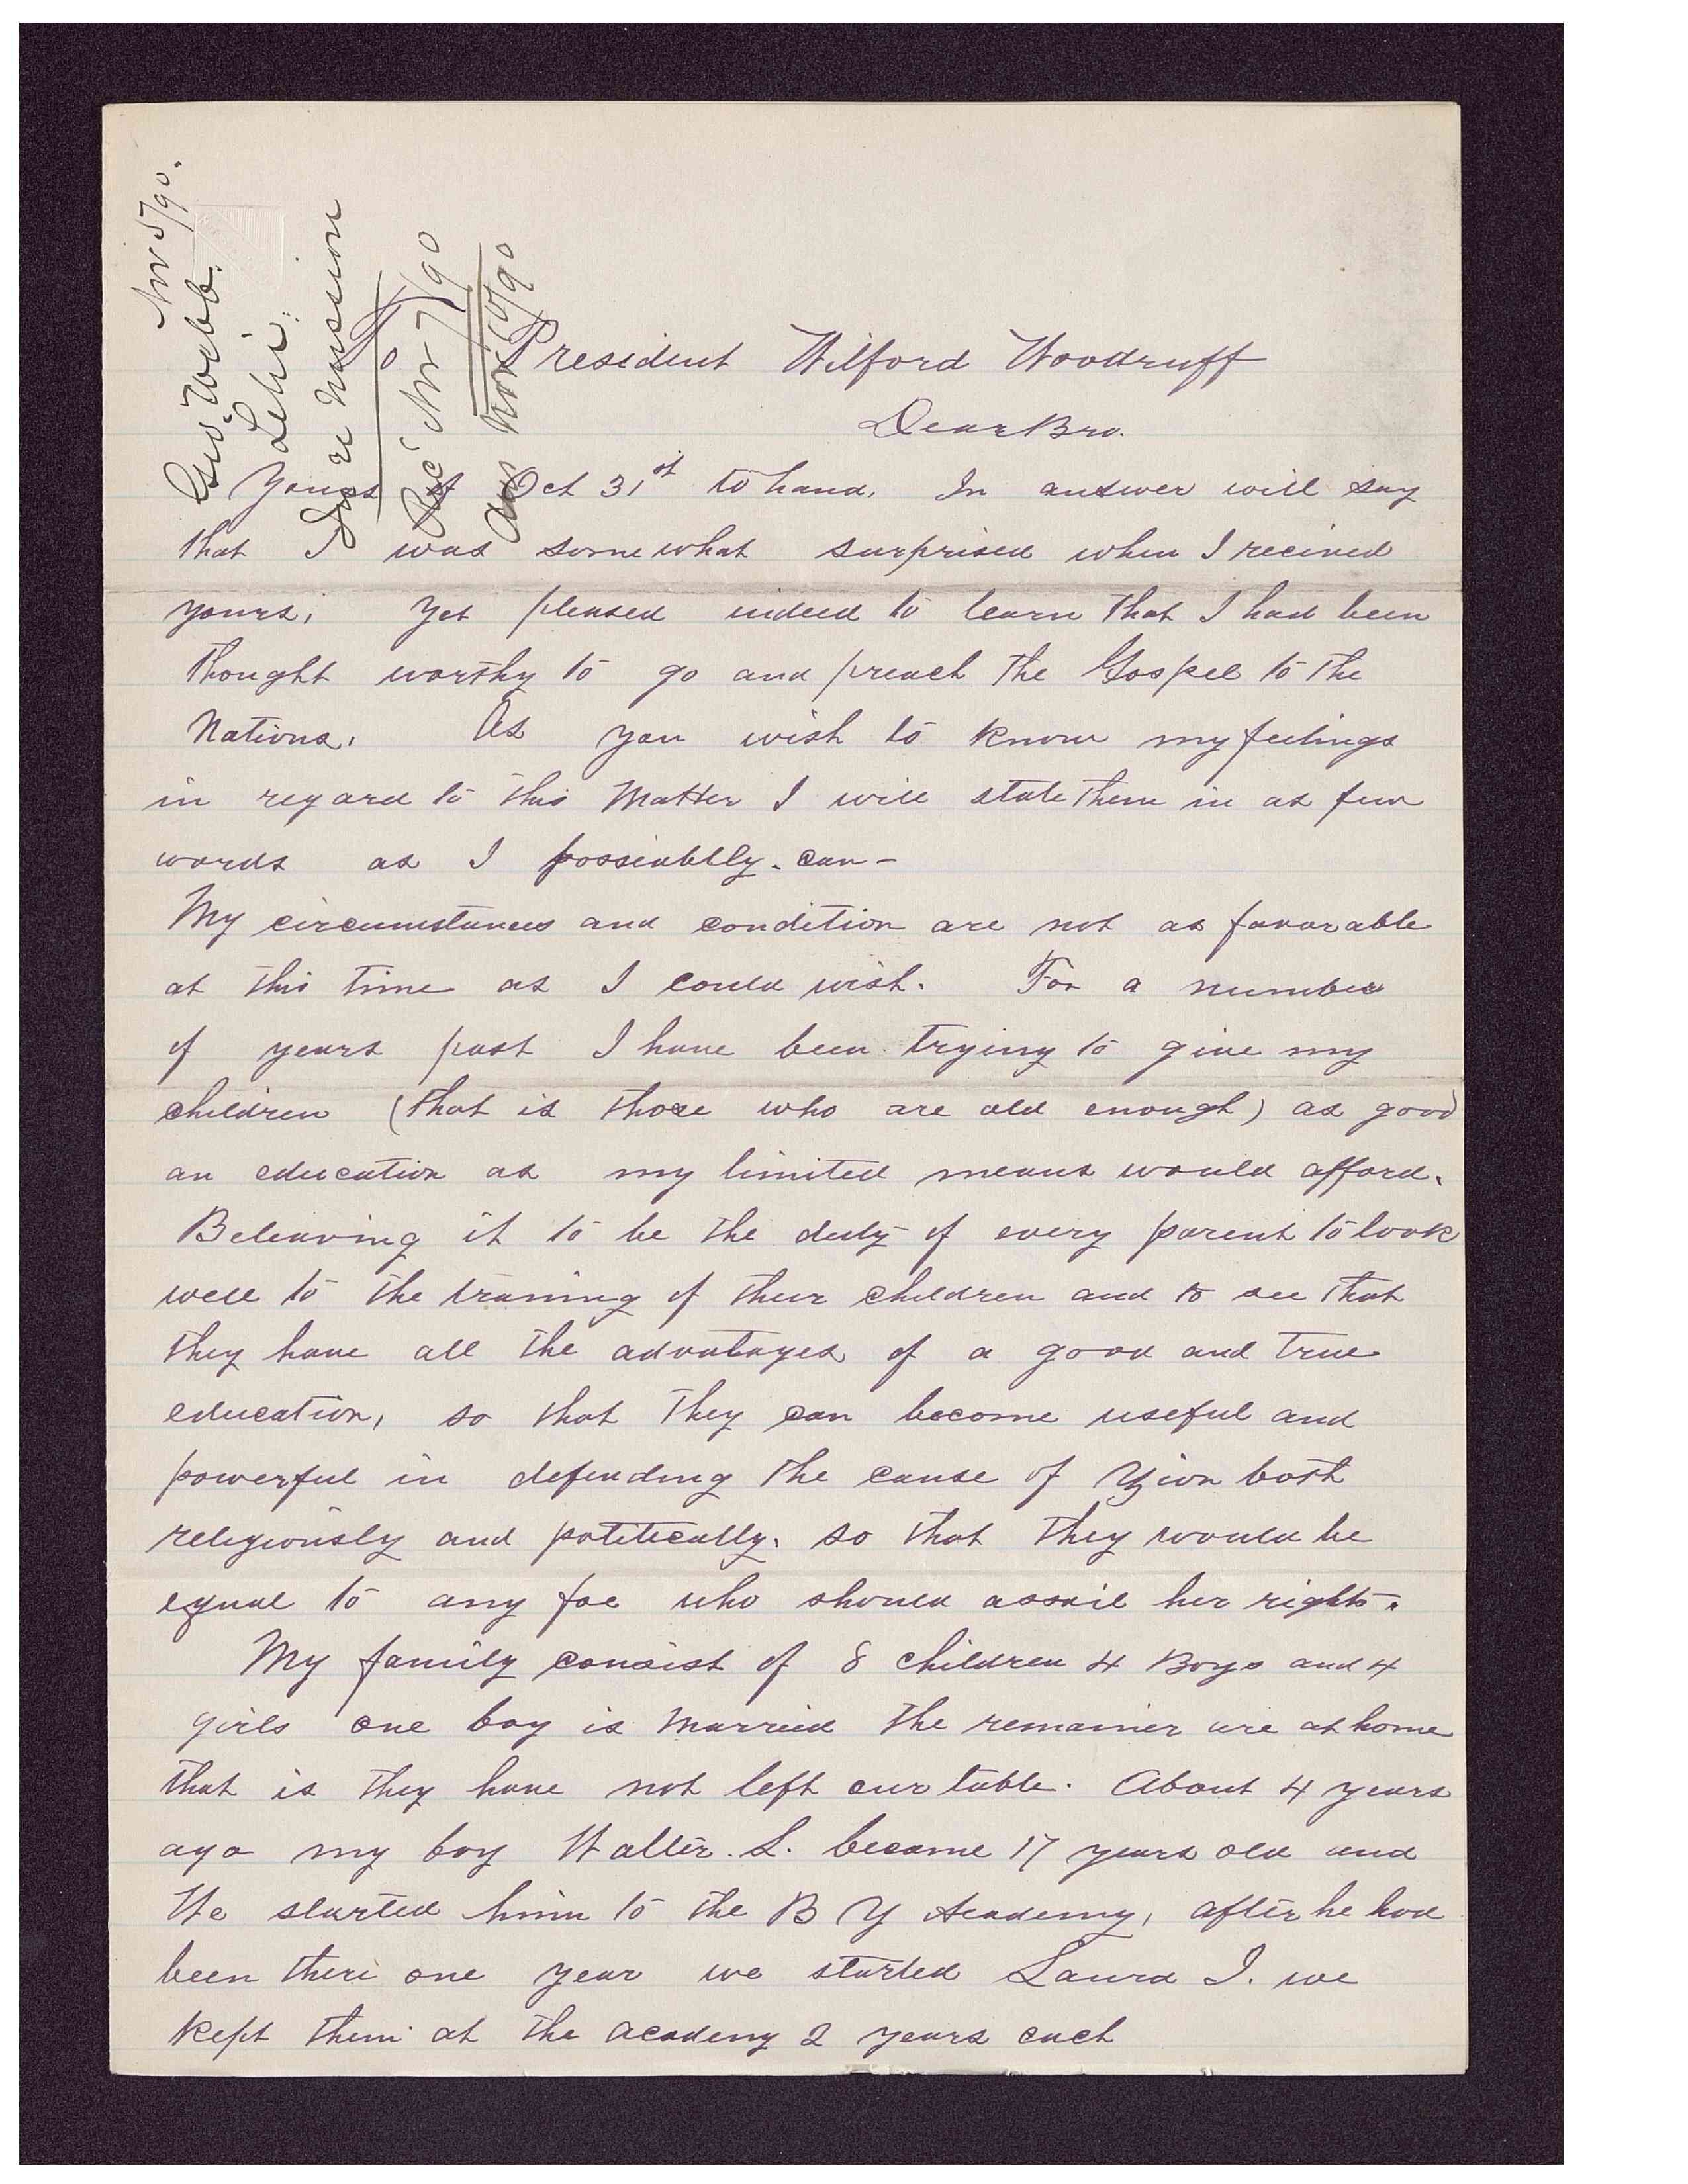 Nov 5/90.
Geo. Webb.
Lehi.
in re mission
Rec Nov 7/90
Ans Nov 10/90
To President Wilford Woodruff
Dear Bro.
Yours of Oct 31st to hand. In answer will say
that I was some what surprised when I recived
yours, Yet pleased indeed to learn that I had been
thought worthy to go and preach the Gospel to the
Nations. As you wish to know my feelings
in regard to this Matter I will state them in as few
words as I possiablly. can -
My circumstances and condition are not as favorable
at this time as I could wish. For a number
of years past I have been trying to give my
children (that is those who are old enough) as good
an education as my limited means would afford.
Beleaving it to be the duty of every parent to look
well to the training of their children and to see that
they have all the advatages of a good and true
education, so that they can become useful and
powerful in defending the cause of Zion both
religiously and politically. so that they would be
equal to any foe who should assail her rights.
My family consist of 8 children 4 Boys and 4
girls one boy is Married the remainer are at home
that is they have not left our table. About 4 years
ago my boy Walter. S. became 17 years old and
We started him to the B Y Academy, after he had
been there one year we started Laura I. we
kept them at the academy 2 years each